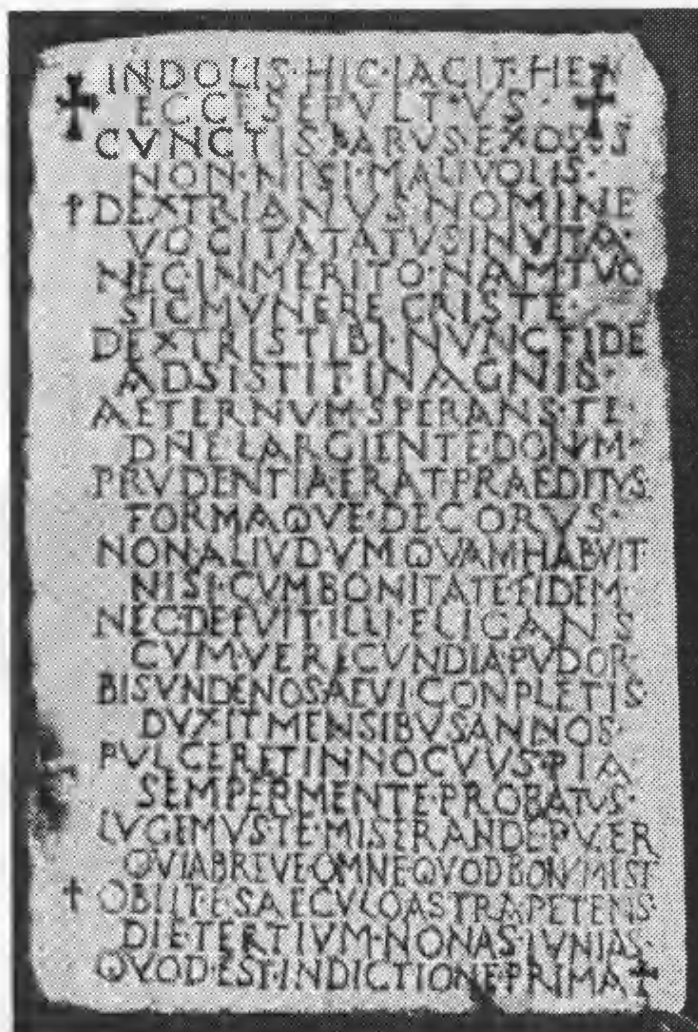 ✝ INDOLIS·HIC·IACIT·HEV
ECCE SEPVLTVS· ✝
CVNCTIS·KARVS·EXOSVS
NON·NISI·MALIVOLIS·
† DEXTRIANVS·NOMINE
VOCITATATVS·IN·VITA·
NEC·INMERITO·NAM·TVO
SIC MVNERE CRISTE·
DEXTRIS·TIBI·NVNC FIDE
ADSISTIT·IN AGNIS·
AETERNVM·SPERANS·TE·
DNE LARGIENTE DONVM·
PRVDENTIA ERAT PRAEDITVS·
FORMAQVE·DECORVS·
NON ALIVD VMQVAM HABVIT
NISI·CVM BONITATE·FIDEM·
NEC·DEFVIT·ILLI·ELIGANS
CVM·VERECVNDIA PVDOR·
BIS VNDENOS AEVI CONPLETIS·
DVXIT MENSIBVS ANNOS·
PVLCER ET INNOCVVS·PIA·
SEMPER MENTE·PROBATVS·
LVGEMVS·TE·MISERANDE·PVER
QVIA BREVE·OMNE QVOD BONVM IST
† OBIIT·E SAECVLO ASTRA PETENS·
DIE·TERTIVM·NONAS·IVNIAS·
QVOD·EST·INDICTIONE·PRIMA ✝